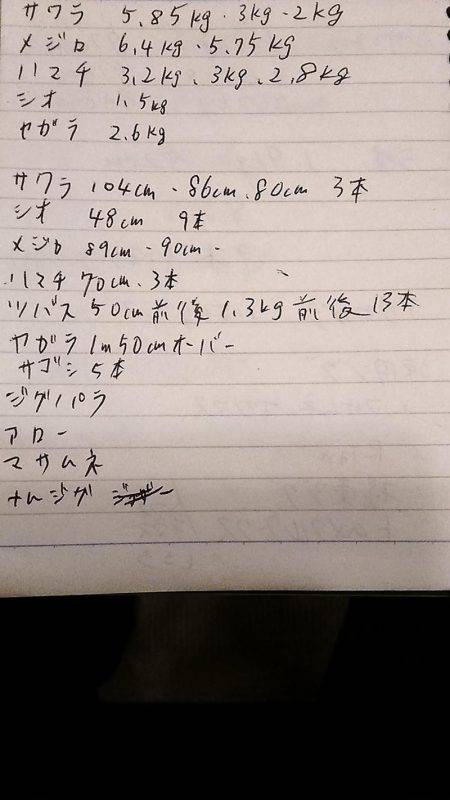 サワラ 5.85kg・3kg・2kg
メジロ 6.4kg・5.75kg
ハマチ 3.2kg、3kg、2.8kg
シオ 1.5kg
ヤガラ 2.6kg
サワラ 104cm・86cm、80cm 3本
シオ 48cm 9本
メジロ 89cm・90cm・
ハマチ 70cm、3本
ツバス 50cm前後 1.3kg前後 13本
ヤガラ 1m50cmオーバー
サゴシ 5本
ジグパラ
アロー
マサムネ
ナムジグ